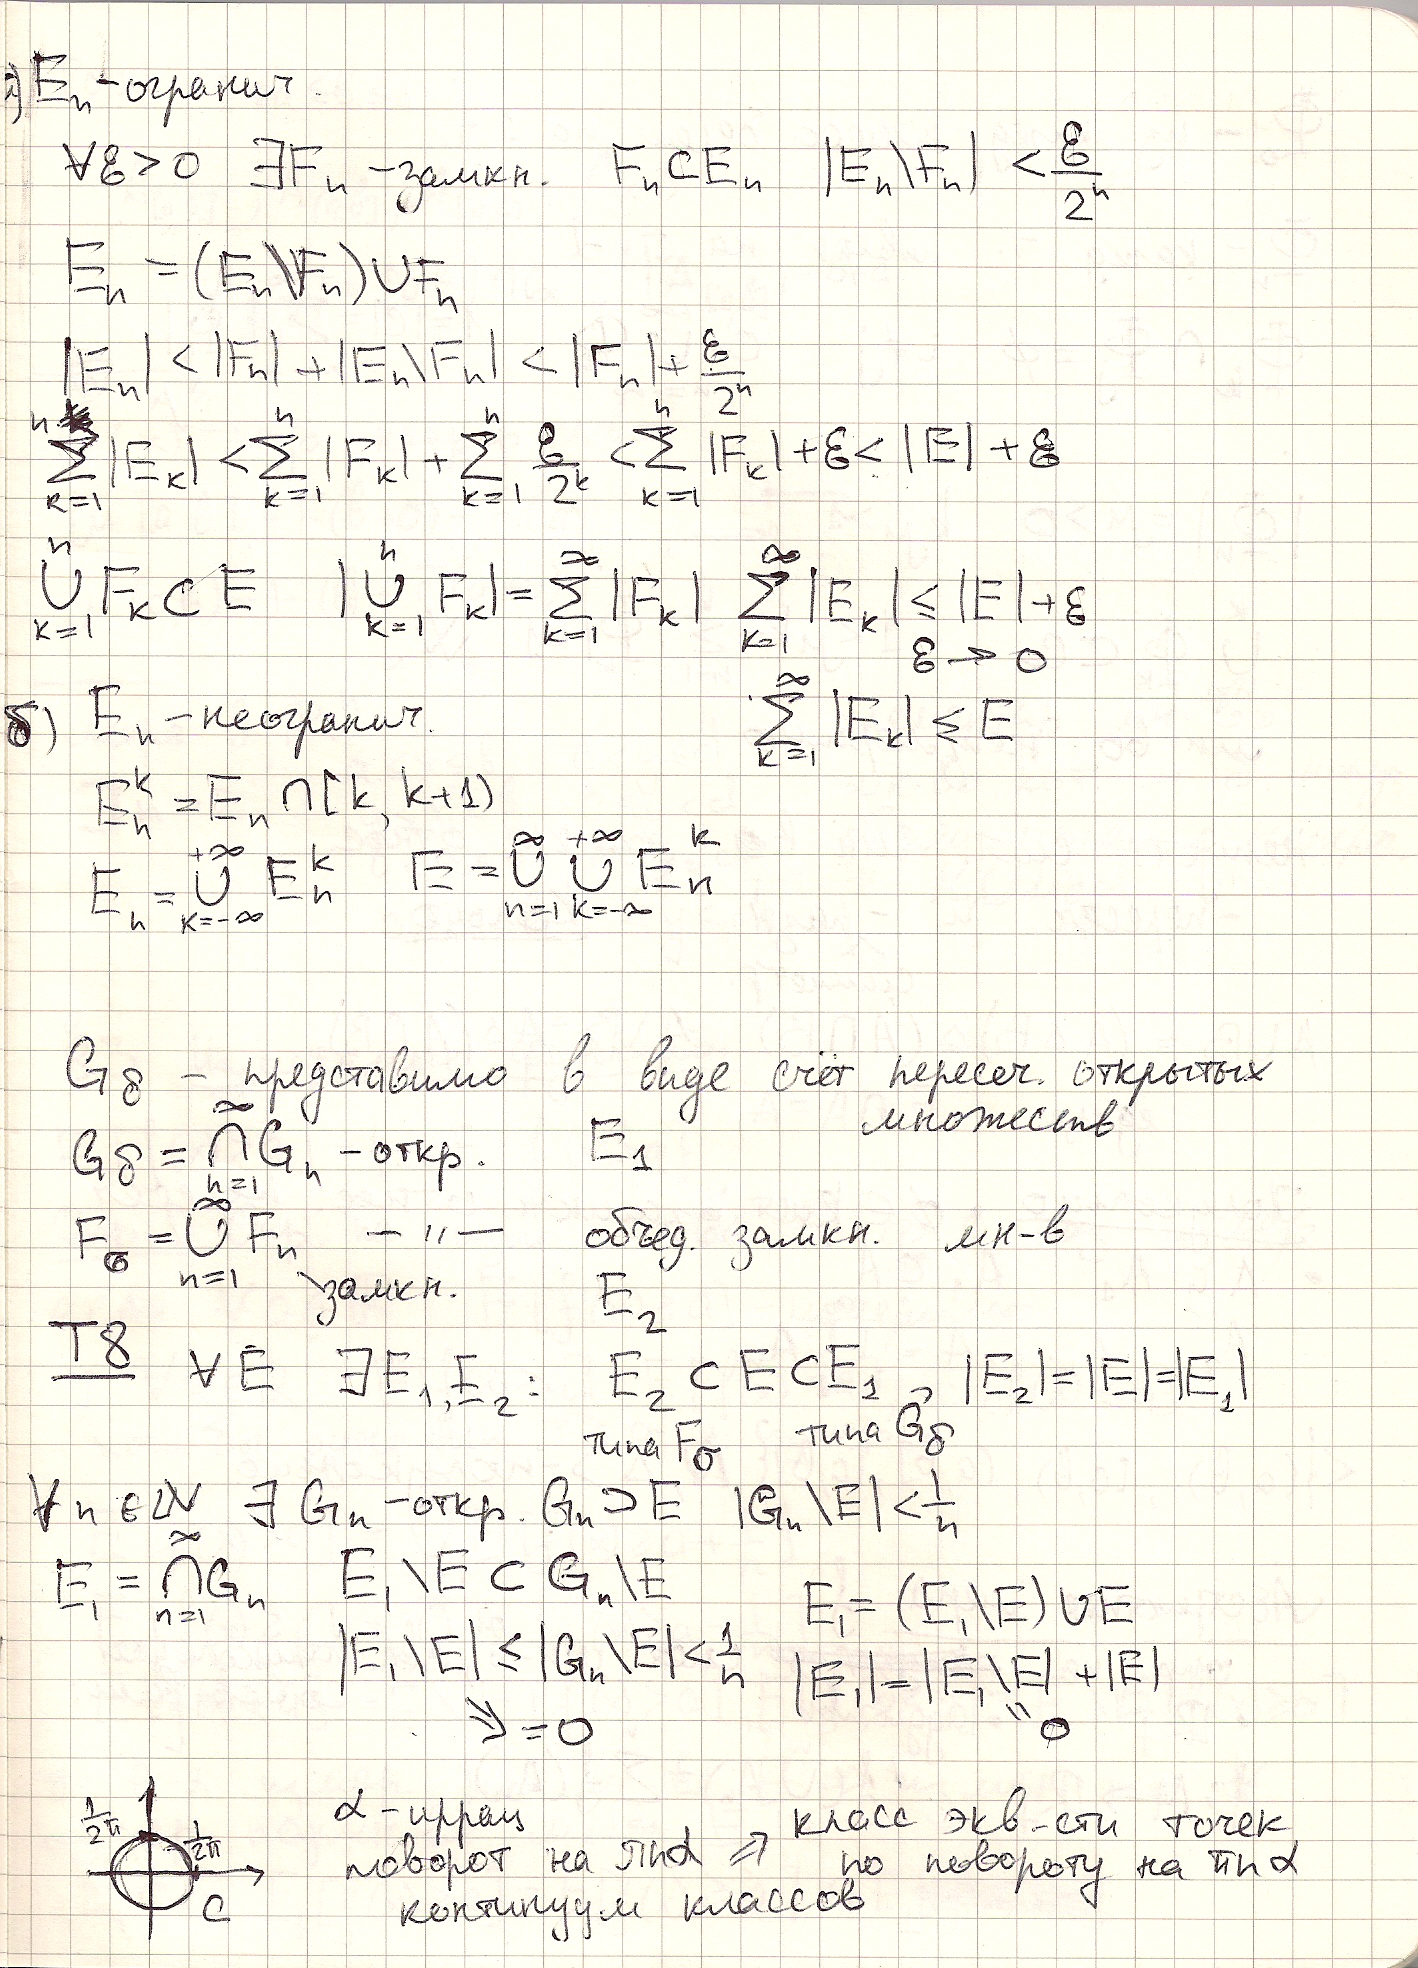 а) Eₙ – огранич.
∀ε > 0 ∃Fₙ – замкн. Fₙ ⊂ Eₙ |Eₙ \ Fₙ| < ε/2ⁿ
Eₙ = (Eₙ \ Fₙ) ∪ Fₙ
|Eₙ| < |Fₙ| + |Eₙ \ Fₙ| < |Fₙ| + ε/2ⁿ
∑ₖ₌₁ⁿ |Eₖ| < ∑ₖ₌₁ⁿ |Fₖ| + ∑ₖ₌₁ⁿ ε/2ᵏ < ∑ₖ₌₁ⁿ |Fₖ| + ε < |E| + ε
∪ₖ₌₁ⁿ Fₖ ⊂ E |∪ₖ₌₁ⁿ Fₖ| = ∑ₖ₌₁^∞ |Fₖ| ∑ₖ₌₁^∞ |Eₖ| ≤ |E| + ε
ε → 0
∑ₖ₌₁^∞ |Eₖ| ≤ E
б) Eₙ – неогранич.
Eₙᵏ = Eₙ ∩ [k, k+1)
Eₙ = ∪ₖ₌₋∞^+∞ Eₙᵏ E = ∪ₙ₌₁^∞ ∪ₖ₌₋∞^+∞ Eₙᵏ
G_δ – представимо в виде счёт пересеч. открытых
множеств
G_δ = ∩ₙ₌₁^∞ Gₙ – откр. E₁
F_σ = ∪ₙ₌₁^∞ Fₙ – " – объед. замкн. мн-в
замкн. E₂
T8 ∀E ∃E₁, E₂ : E₂ ⊂ E ⊂ E₁, |E₂| = |E| = |E₁|
типа F_σ типа G_δ
∀n ∈ N ∃ Gₙ – откр. Gₙ ⊃ E |Gₙ \ E| < 1/n
E₁ = ∩ₙ₌₁^∞ Gₙ E₁ \ E ⊂ Gₙ \ E E₁ = (E₁ \ E) ∪ E
|E₁ \ E| ≤ |Gₙ \ E| < 1/n |E₁| = |E₁ \ E| + |E|
⇓ = 0 " 0
1/2π 1/2π C
α – иррац
поворот на πnα ⇒ класс экв-сти точек
по повороту на πnα
континуум классов